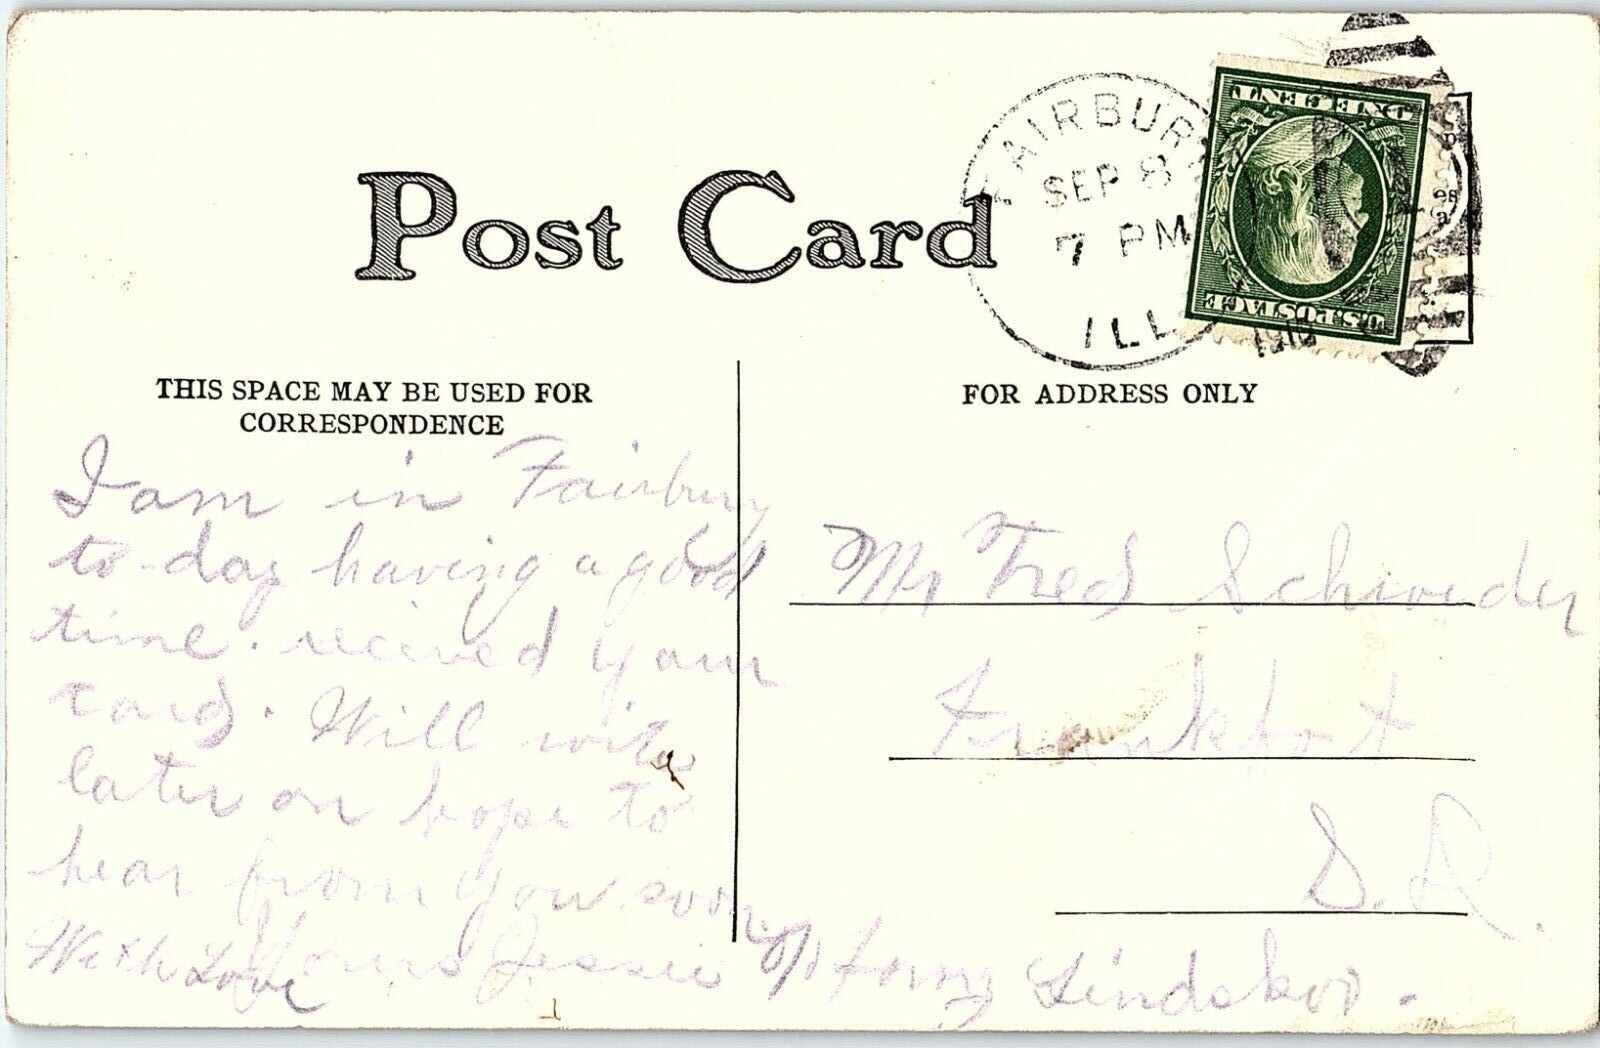 POST CARD
FAIRBURY
SEP 8
7 PM
1910
ILL.
ONE CENT
U.S. POSTAGE
THIS SPACE MAY BE USED FOR
CORRESPONDENCE
FOR ADDRESS ONLY
I am in Fairbury
to-day having a good
time. recived your
card. Will write
later on hope to
hear from you soon
With Love Yours Jessie
Mr Fred Schroeder
Frankfort
S. D.